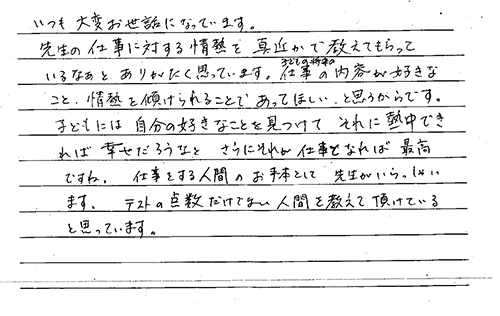 いつも大変お世話になっています。
先生の仕事に対する情熱を真近かで教えてもらって
いるなぁとありがたく思っています。子どもの将来の仕事の内容が好きな
こと、情熱を傾けられることであってほしい、と思うからです。
子どもには自分の好きなことを見つけてそれに熱中でき
れば幸せだろうなと さらにそれが仕事となれば最高
ですね。仕事をする人間のお手本として先生がいらっしゃい
ます。テストの点数だけでない人間を教えて頂けている
と思っています。